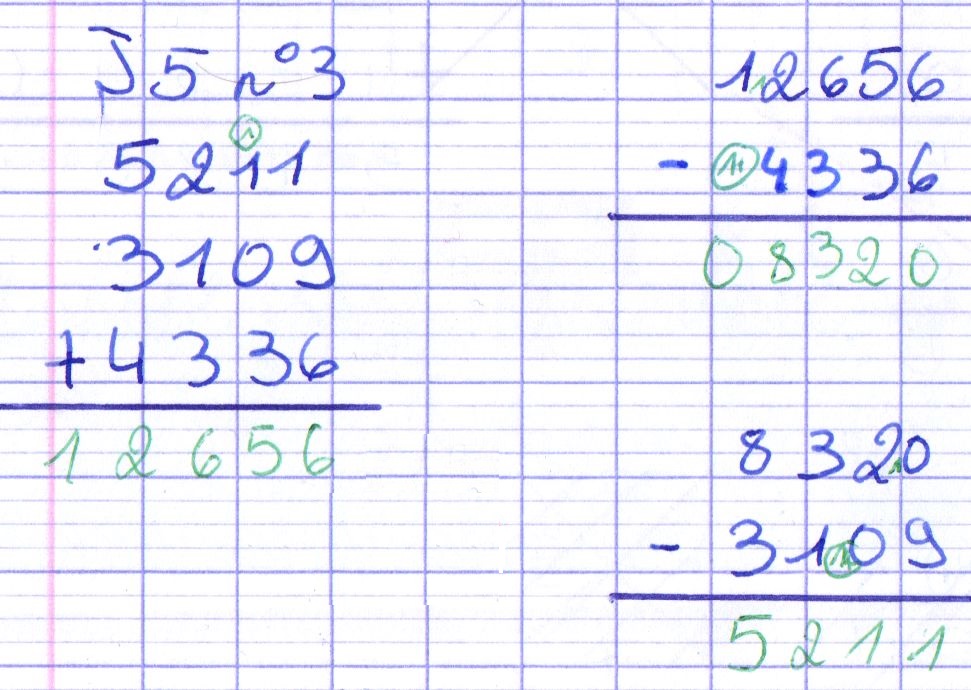 J5 n°3
1
5211
3109
+4336
12656
112656
- 1 4336
08320
83210
- 31109
5211